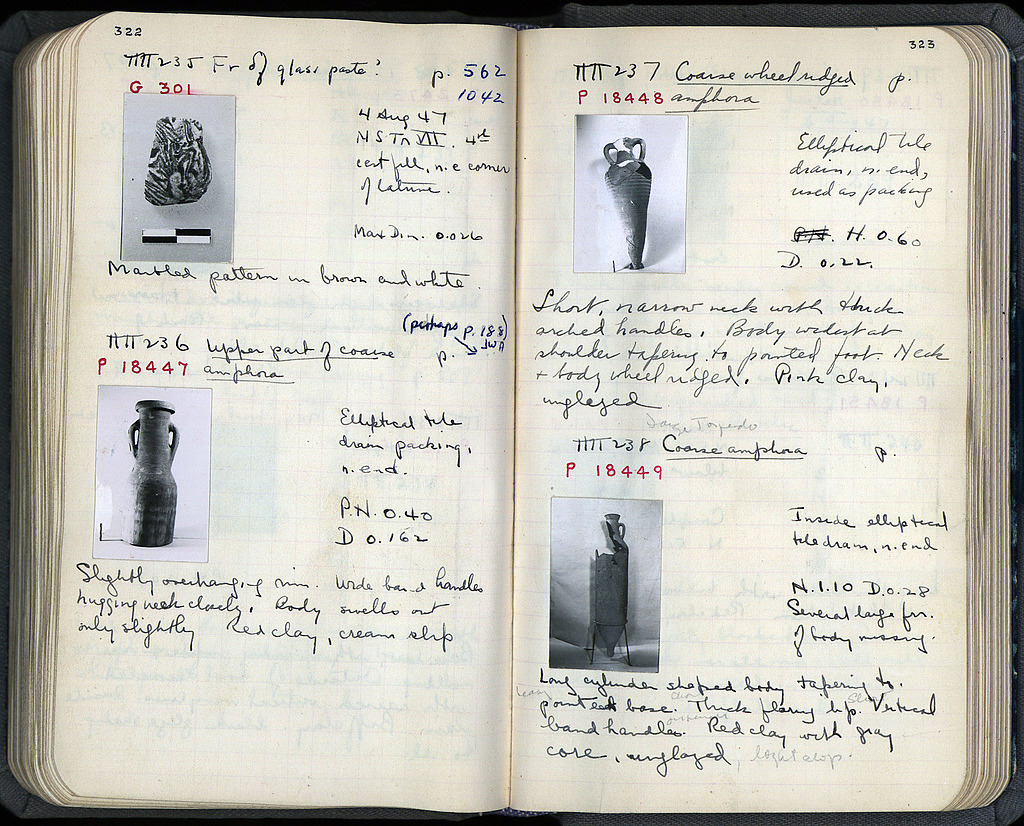 322
ΠΠ 235 Fr of glass paste?
p. 562
G 301
1042
4 Aug 47
NS Tr VII. 4th
cent fill, n.e corner
of Latrine.
Max Dim. 0.026
Marbled pattern in brown and white.
(perhaps p. 188)
JWA
ΠΠ 236 Upper part of coarse
p.
P 18447 amphora
Elliptical tile
drain packing,
n. end.
P.H. 0.40
D 0.162
Slightly overhanging rim. Wide band handles
hugging neck closely. Body swells out
only slightly Red clay, cream slip
323
ΠΠ 237 Coarse wheel ridged
p.
P 18448 amphora
Elliptical tile
drain, n. end,
used as packing
P.H. H. 0.60
D. 0.22.
Short, narrow neck with thick
arched handles. Body widest at
shoulder tapering to pointed foot. Neck
+ body wheel ridged. Pink clay,
unglazed
Large Torpedo
ΠΠ 238 Coarse amphora
p.
P 18449
Inside elliptical
tile drain, n. end
H. 1.10 D. 0.28
Several large frr.
of body missing.
Long cylinder shaped body tapering to
pointed base. Thick flaring lip. Vertical
band handles. Red clay with gray
core, unglazed, light slip.